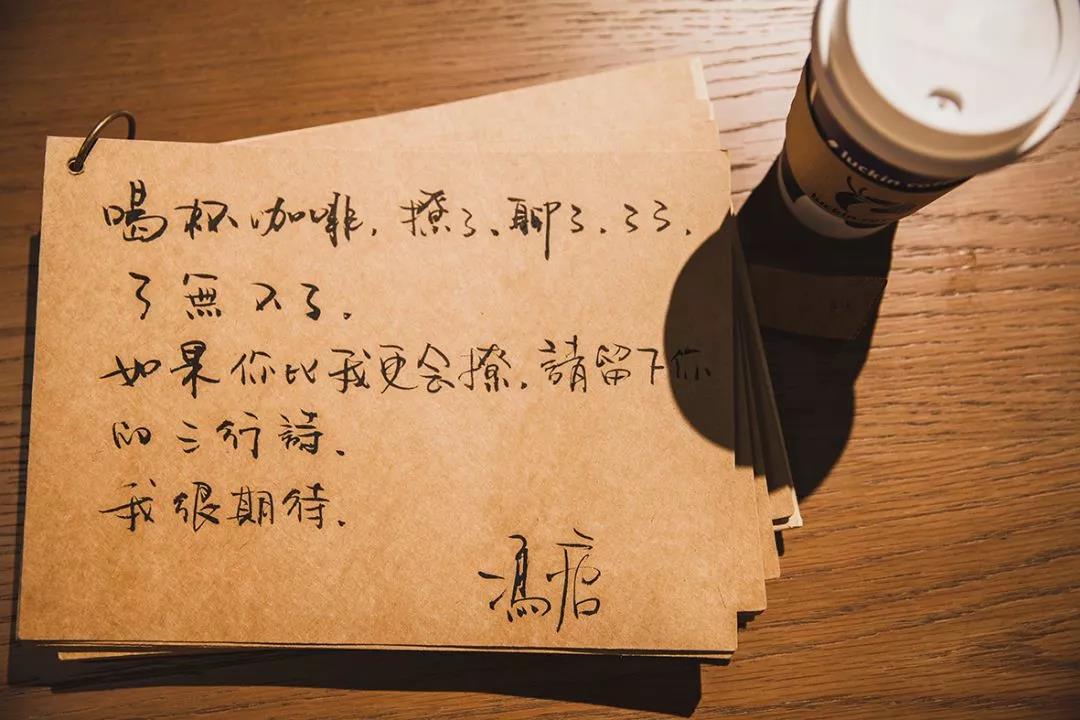 喝杯咖啡，撩了、聊了、了了，
了無不了。
如果你比我更会撩，請留下你
的三行詩。
我很期待。
馮唐
luckin co